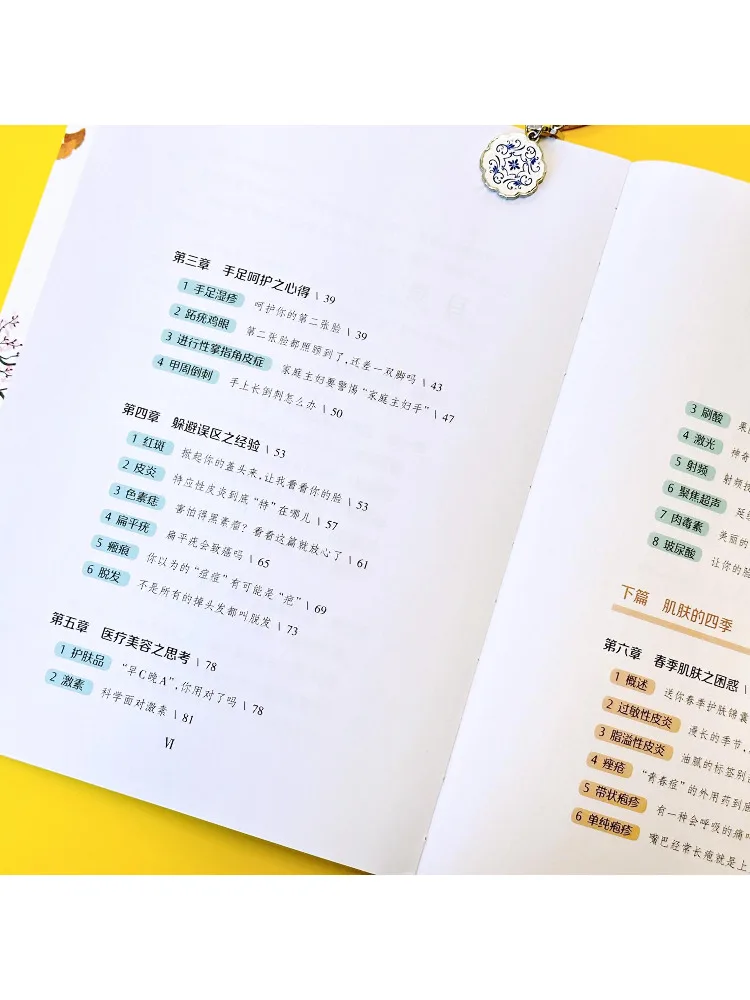 第三章 手足呵护之心得 \ 39
1 手足湿疹 呵护你的第二张脸 \ 39
2 跖疣鸡眼 第二张脸都照顾到了,还差一双脚吗 \ 43
3 进行性掌指角皮症 家庭主妇要警惕“家庭主妇手” \ 47
4 甲周倒刺 手上长倒刺怎么办 \ 50
第四章 躲避误区之经验 \ 53
1 红斑 掀起你的盖头来,让我看看你的脸 \ 53
2 皮炎 特应性皮炎到底“特”在哪儿 \ 57
3 色素痣 害怕得黑素瘤?看看这篇就放心了 \ 61
4 扁平疣 扁平疣会致癌吗 \ 65
5 瘢痕 你以为的“痘痘”有可能是“疤” \ 69
6 脱发 不是所有的掉头发都叫脱发 \ 73
第五章 医疗美容之思考 \ 78
1 护肤品 “早C晚A”,你用对了吗 \ 78
2 激素 科学面对激素 \ 81
VI
3 刷酸 果
4 激光 神奇
5 射频 射频技
6 聚焦超声 延
7 肉毒素 美丽的
8 玻尿酸 让你的脸
下篇 肌肤的四季
第六章 春季肌肤之困惑 \
1 概述 送你春季护肤锦囊
2 过敏性皮炎 漫长的季节,
3 脂溢性皮炎 油腻的标签别
4 痤疮 “青春痘”的外用药到底
5 带状疱疹 有一种会呼吸的痛
6 单纯疱疹 嘴巴经常长疱就是上